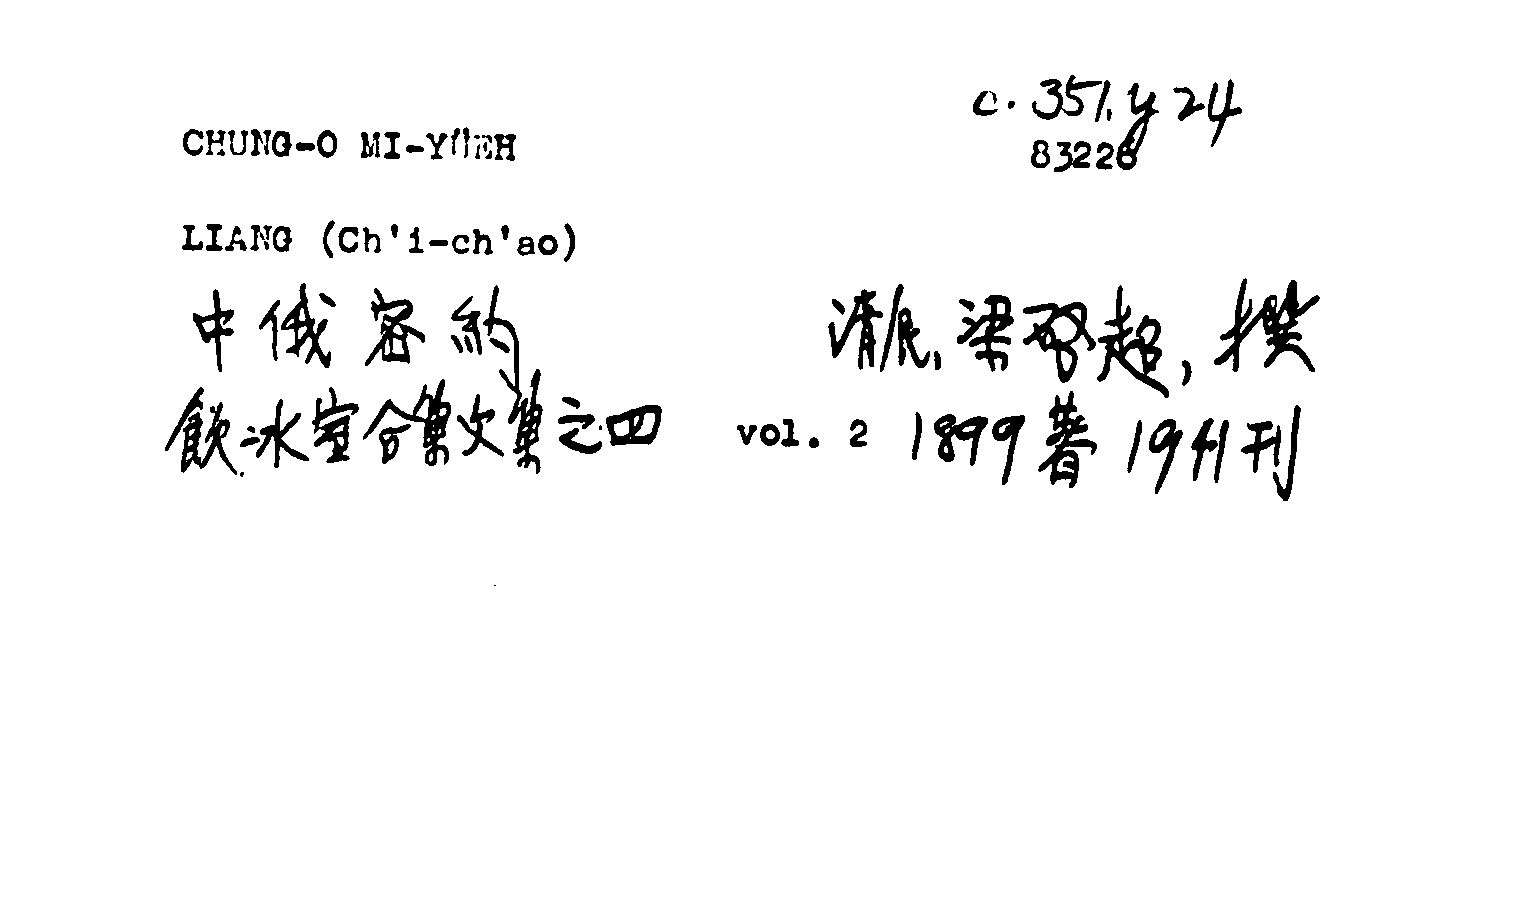 c. 351. y 24
83226
CHUNG-O MI-YÜEH
LIANG (Ch'i-ch'ao)
中俄密約 清民, 梁啓超, 撰
飲冰室合集文集之四 vol. 2 1899著 1941刊